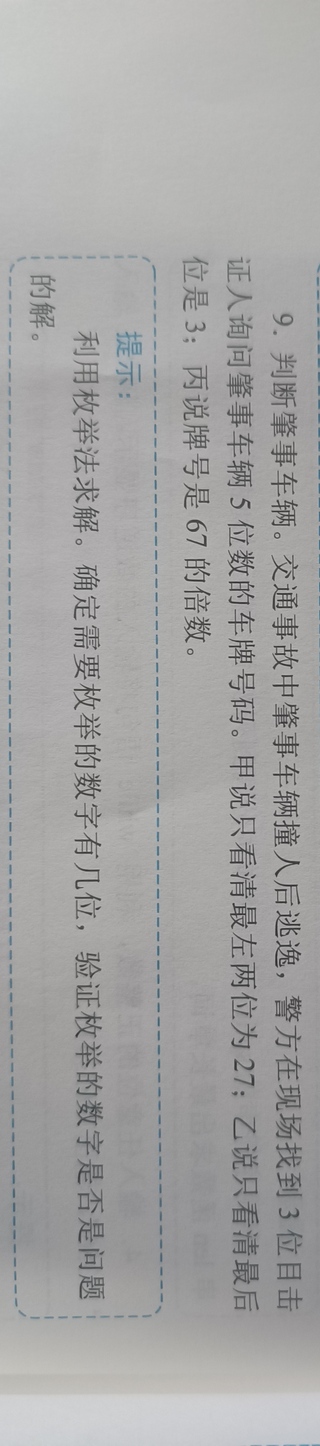 9. 判断肇事车辆。交通事故中肇事车辆撞人后逃逸，警方在现场找到 3 位目击
证人询问肇事车辆 5 位数的车牌号码。甲说只看清最左两位为 27；乙说只看清最后
位是 3；丙说牌号是 67 的倍数。
提示：
利用枚举法求解。确定需要枚举的数字有几位，验证枚举的数字是否是问题
的解。